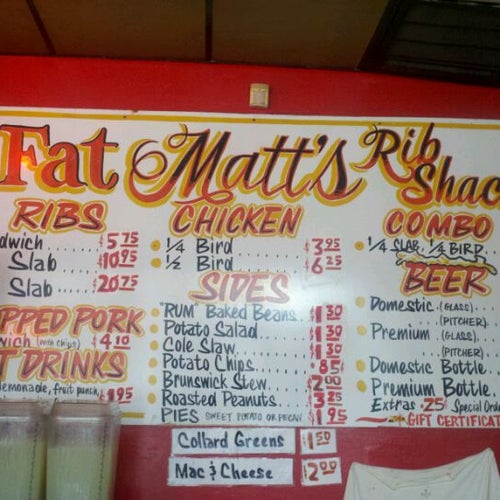 Fat Matt's Rib Shac
RIBS
dwich ..... $5.75
Slab .... $10.95
Slab ..... $20.75
OPPED PORK
wich (with chips) $4.10
T DRINKS
lemonade, fruit punch, $1.95
CHICKEN
1/4 Bird ........ $3.95
1/2 Bird ........ $6.25
SIDES
"RUM" Baked Beans . $1.30
Potato Salad ..... $1.30
Cole Slaw ....... $1.30
Potato Chips ...... .85¢
Brunswick Stew .... $2.00
Roasted Peanuts ... $3.25
PIES SWEET POTATO OR PECAN $1.95
Collard Greens $1.50
Mac & Cheese $2.00
COMBO
1/4 SLAB, 1/4 BIRD ..
BEER
Domestic .. (GLASS) ..
(PITCHER) ..
Premium .. (GLASS) ..
(PITCHER) ..
Domestic Bottle ..
Premium Bottle ..
Extras .25¢ Special Orde
GIFT CERTIFICAT